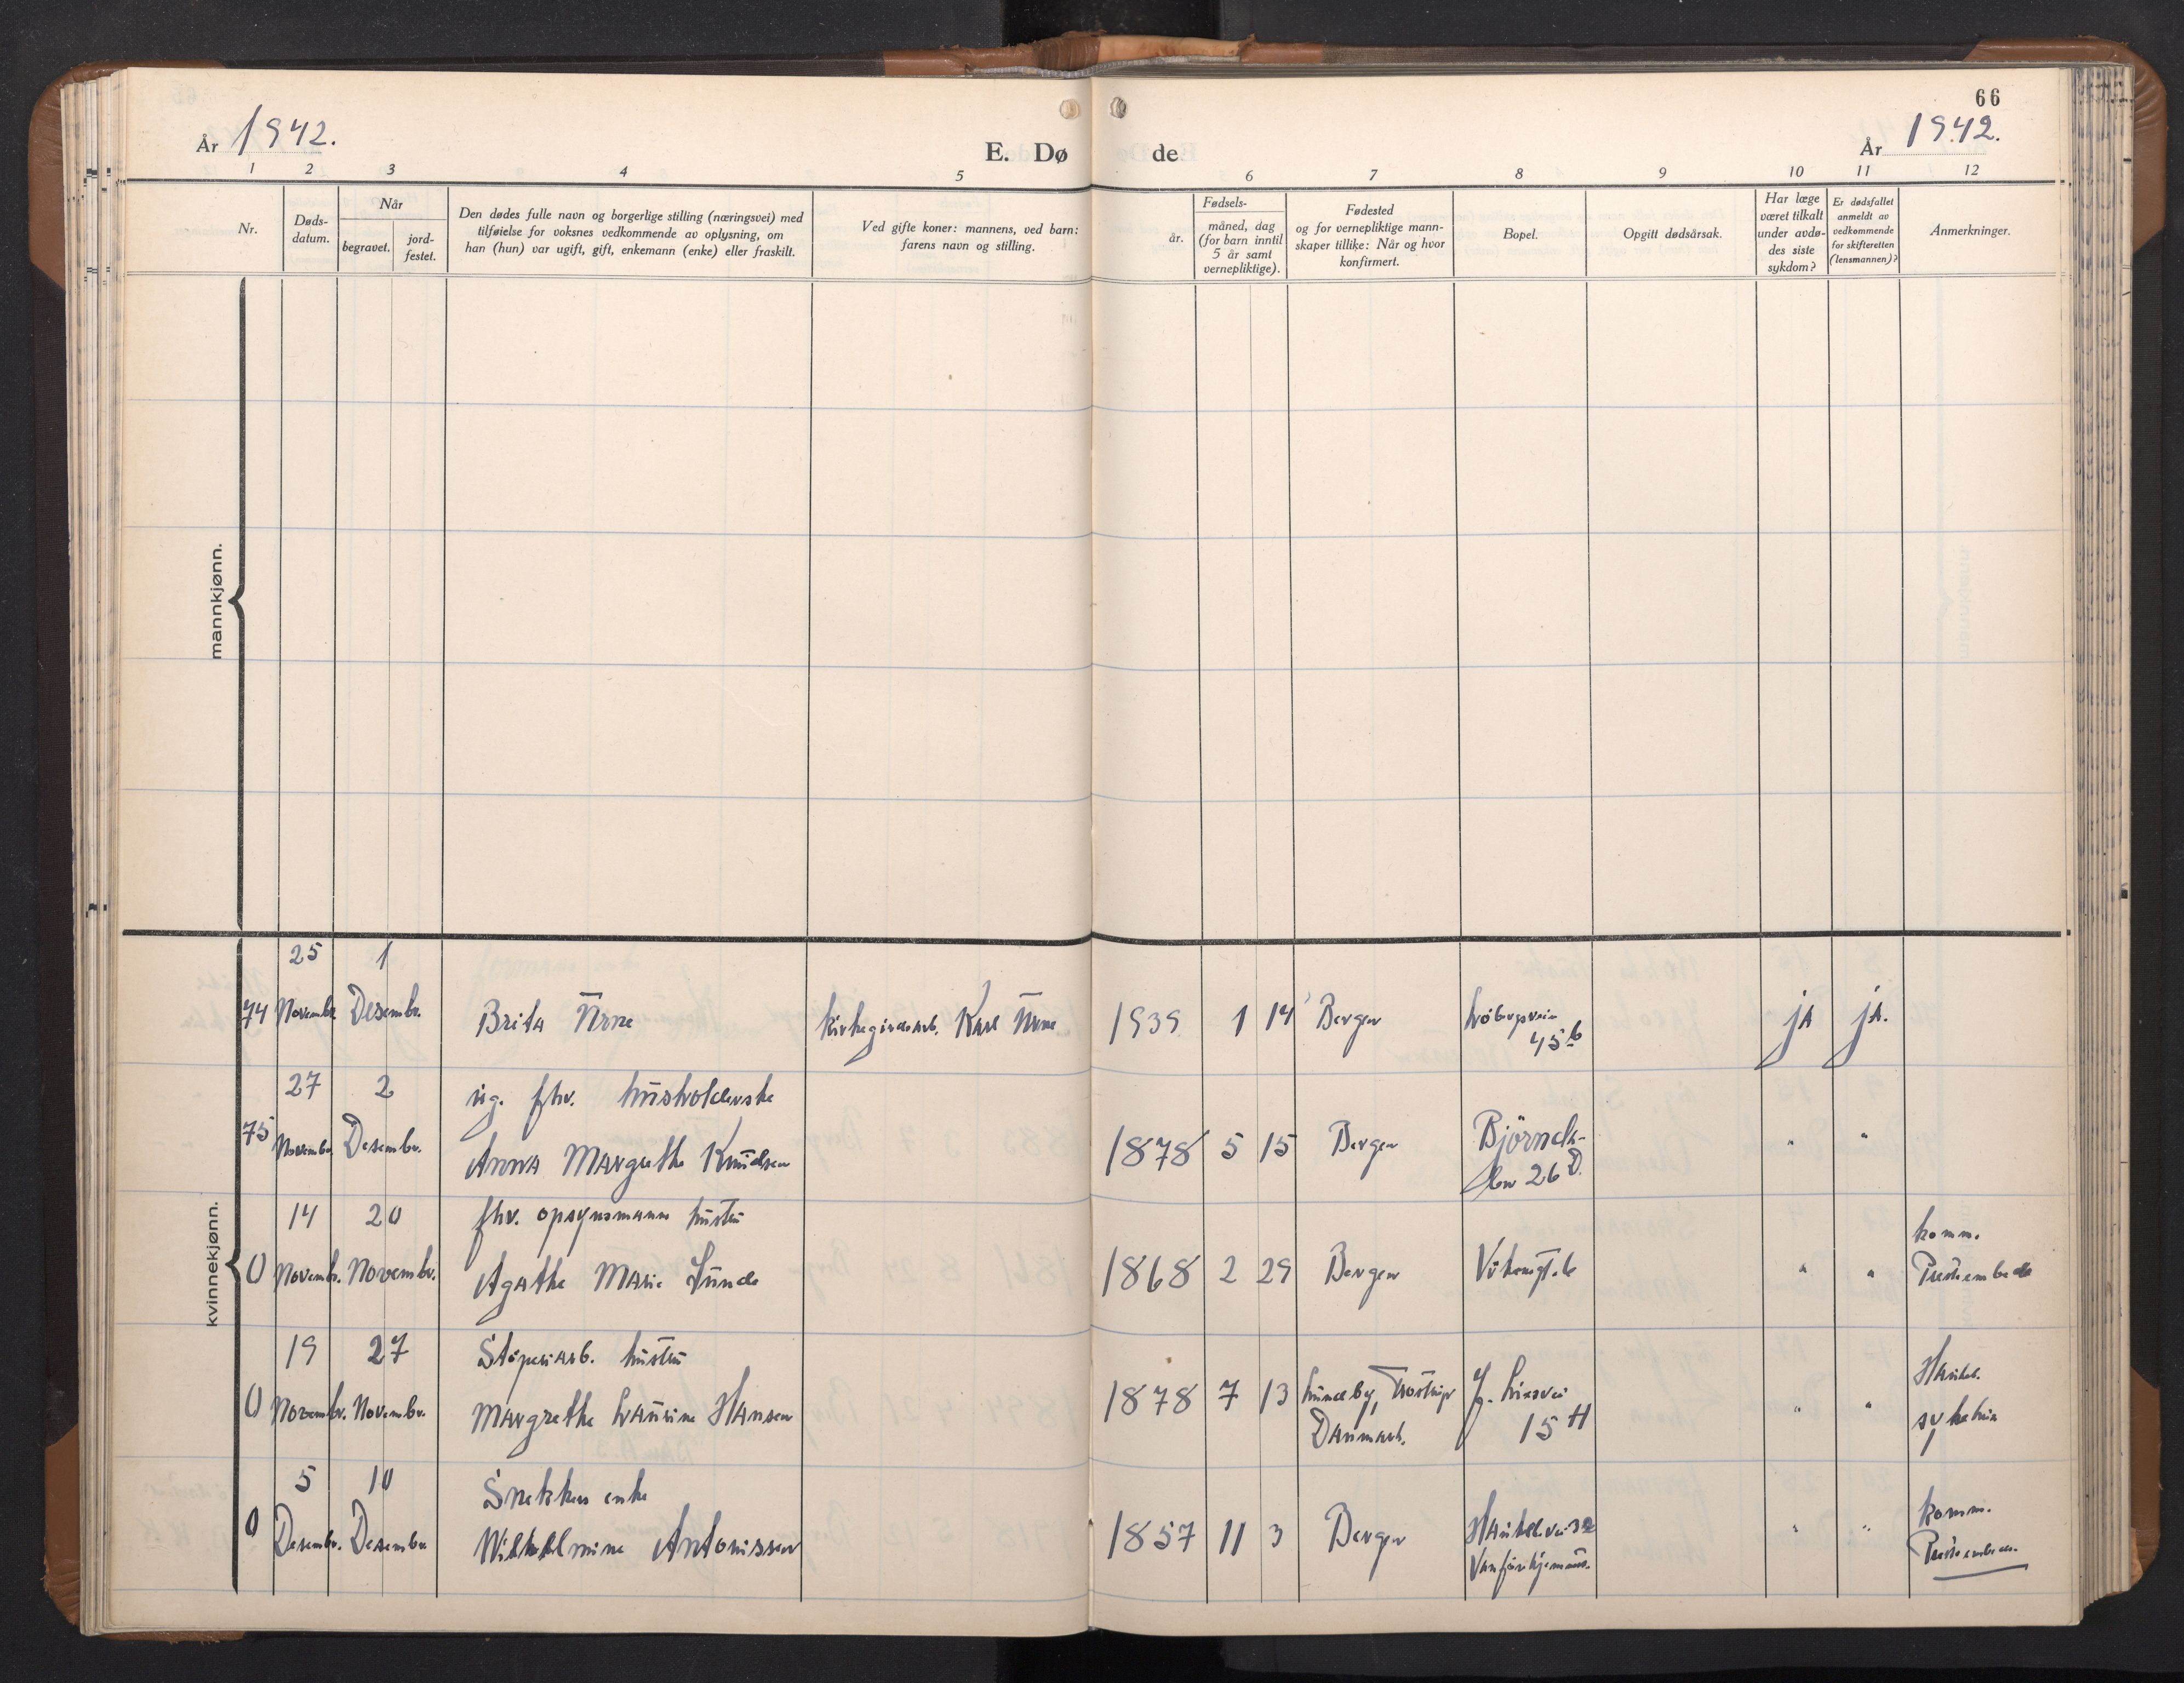 66
År 1942.
E. Dø de
År 1942.
1 2 3 4 5 6 7 8 9 10 11 12
Nr.
Døds-
datum.
Når
begravet.
jord-
festet.
Den dødes fulle navn og borgerlige stilling (næringsvei) med
tilføielse for voksnes vedkommende av oplysning, om
han (hun) var ugift, gift, enkemann (enke) eller fraskilt.
Ved gifte koner: mannens, ved barn:
farens navn og stilling.
Fødsels-
år.
måned, dag
(for barn inntil
5 år samt
vernepliktige).
Fødested
og for vernepliktige mann-
skaper tillike: Når og hvor
konfirmert.
Bopel.
Opgitt dødsårsak.
Har læge
været tilkalt
under avdø-
des siste
sykdom?
Er dødsfallet
anmeldt av
vedkommende
for skifteretten
(lensmannen)?
Anmerkninger.
mannkjønn.
kvinnekjønn.
25 1
74 Novembr. Desembr. Brita Urne Karl Urne 1939 1 14 Bergen 45 b ja ja.
27 2 ug. fhv. husholderske
75 Novembr. Desembr. Anna Margrethe Knudsen 1878 5 15 Bergen Björnda-
len 26 D. " "
14 20 fhv. opsynsmanns hustru
0 Novembr. Novembr. Agathe Marie Lunde 1868 2 29 Bergen " " komm.
Presteembede
19 27 Støperiarb. hustru
0 Novembr. Novembr. Margrethe Laurine Hansen 1878 7 13 Danmark. 15 H " "
5 10 Snekkers enke
0 Desembr. Desembr. Wilhelmine Antonissen 1857 11 3 Bergen " " komm.
Presteembede.